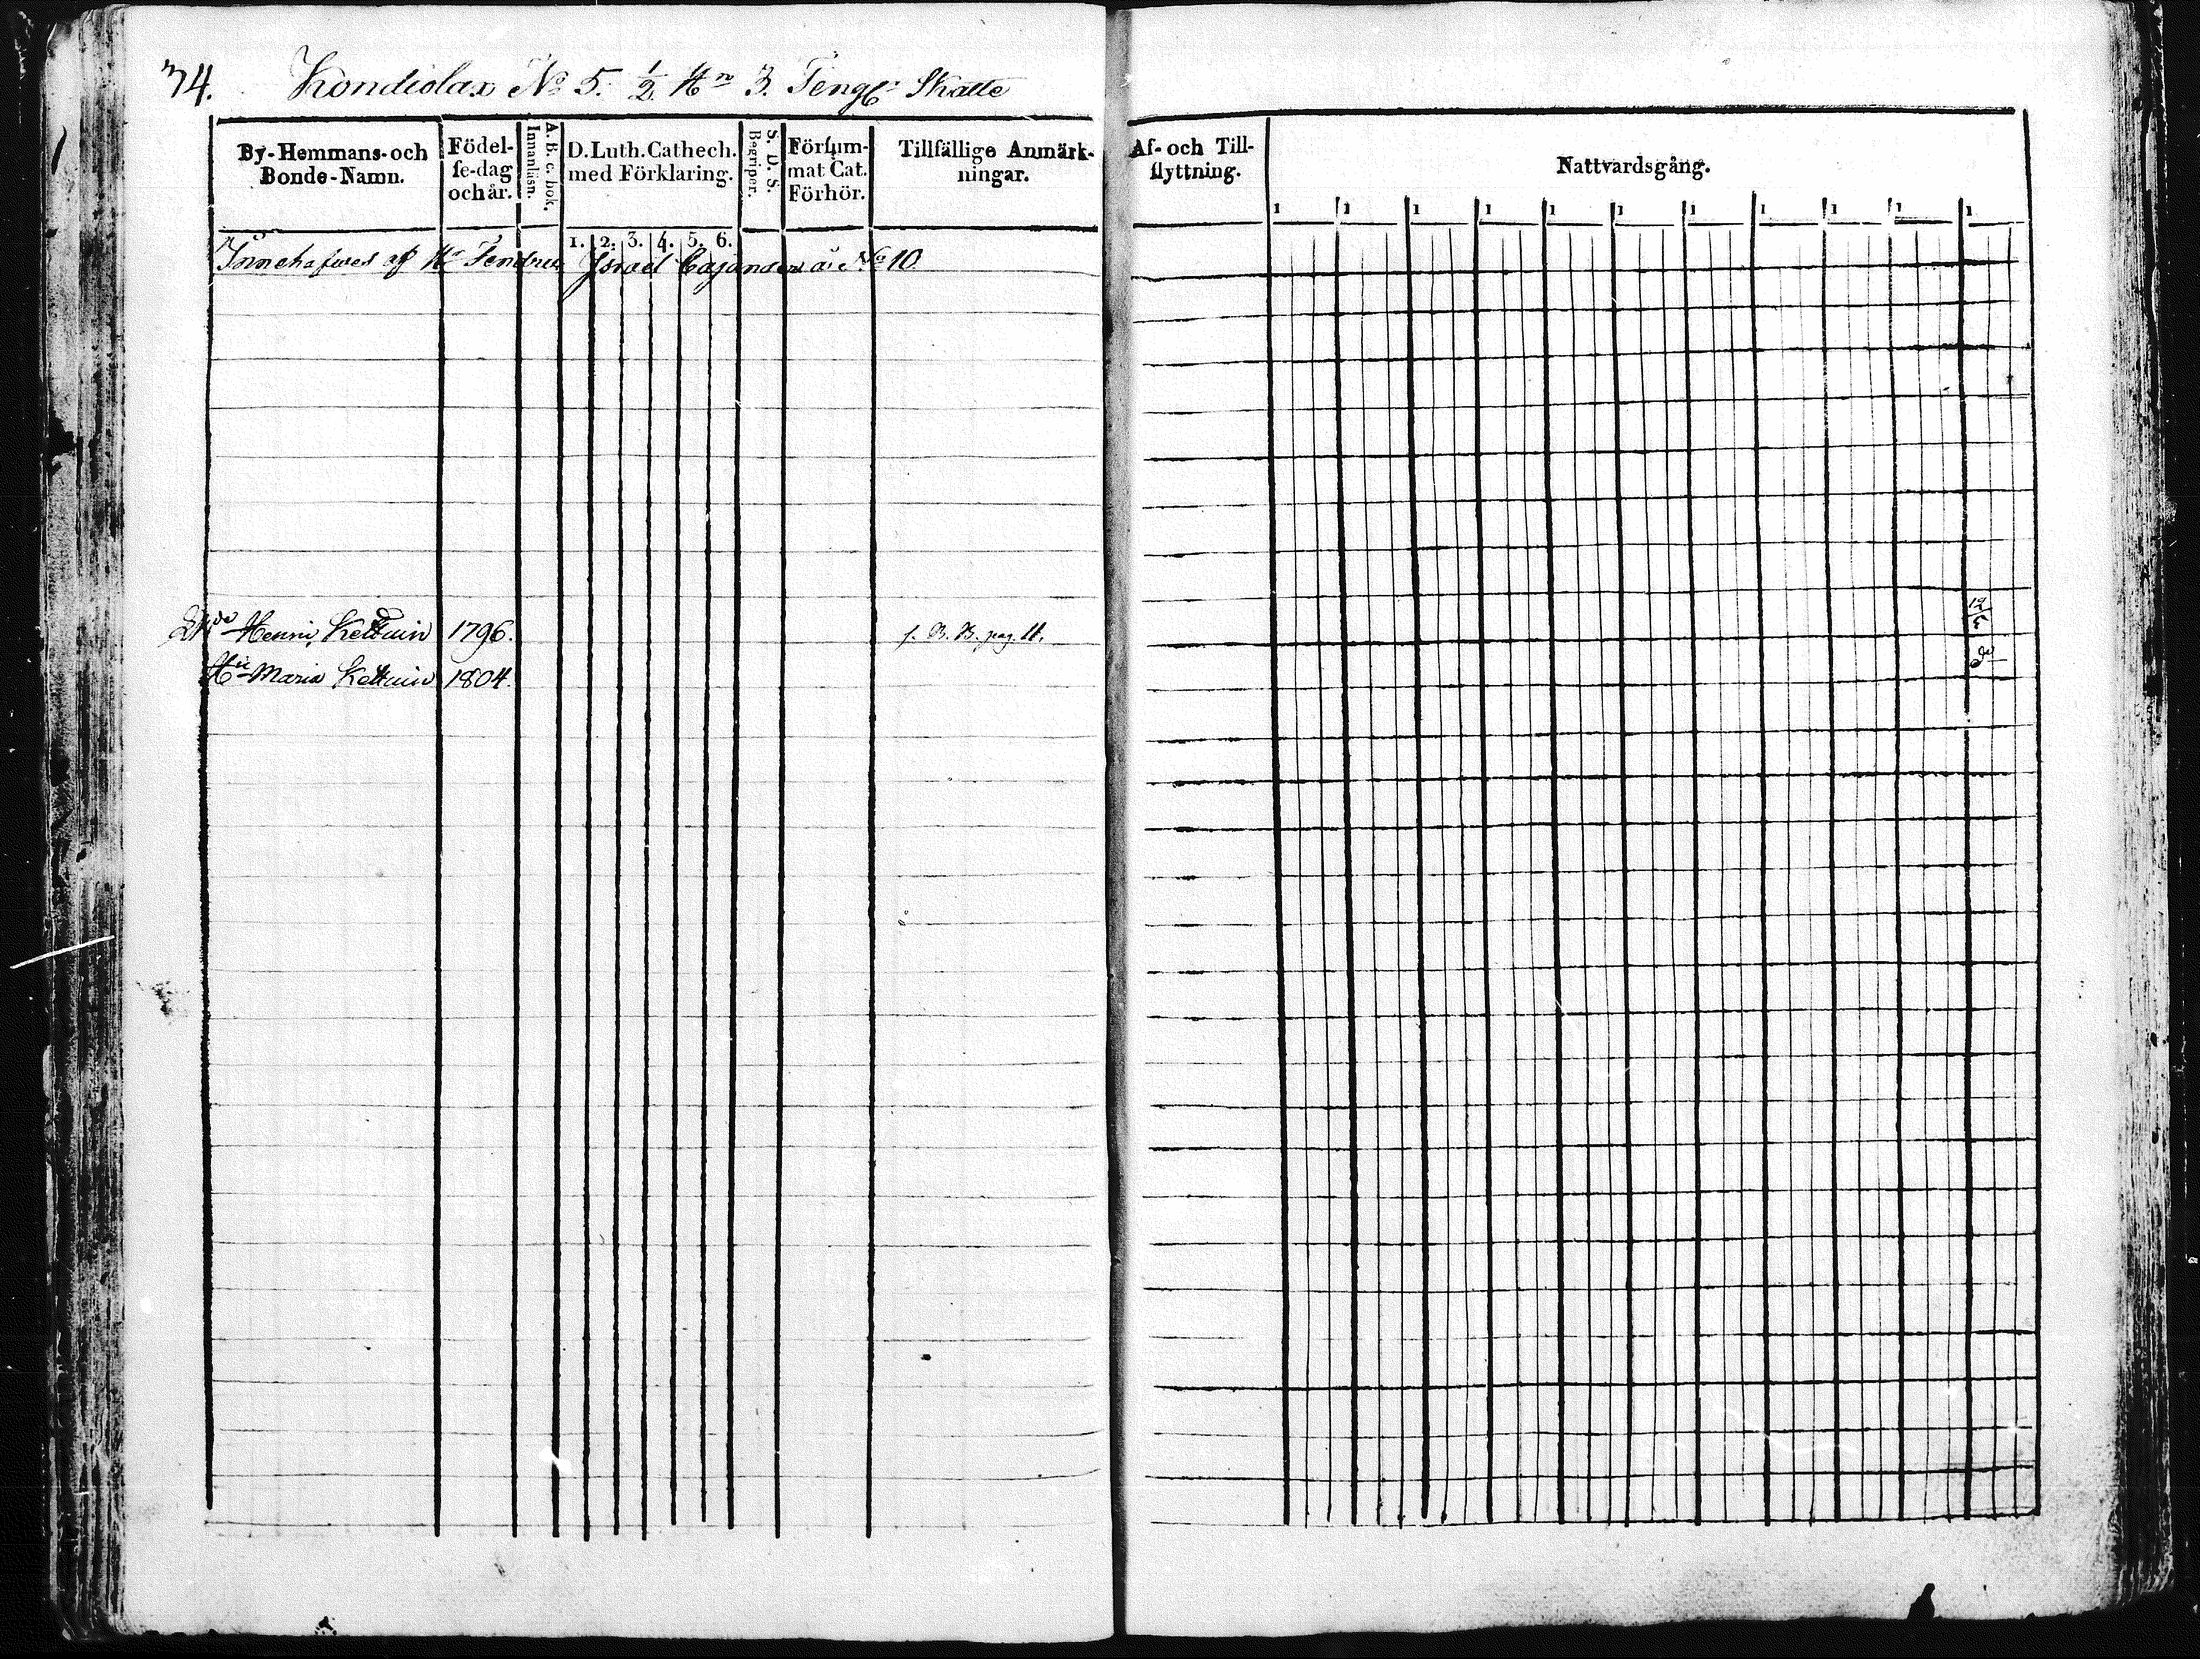 74. Kondiolax No 5. 1/2 Hn 3. Tengl: Skatte
By-Hemmans- och Bonde-Namn.
Födel-se-dag och år.
A. B. c. bok. Innanläsn.
D. Luth. Cathech. med Förklaring.
S. D. S. Begriper.
Försum-mat Cat. Förhör.
Tillfällige Anmärk-ningar.
Af- och Till-flyttning.
Nattvardsgång.
1 1 1 1 1 1 1 1 1 1 1
1. 2. 3. 4. 5. 6.
Innehafves af Israel Cajander å No 10.
Henric Kettuin 1796. f. B. B. pag. 11. 12/5
Maria Kettuin 1804. do